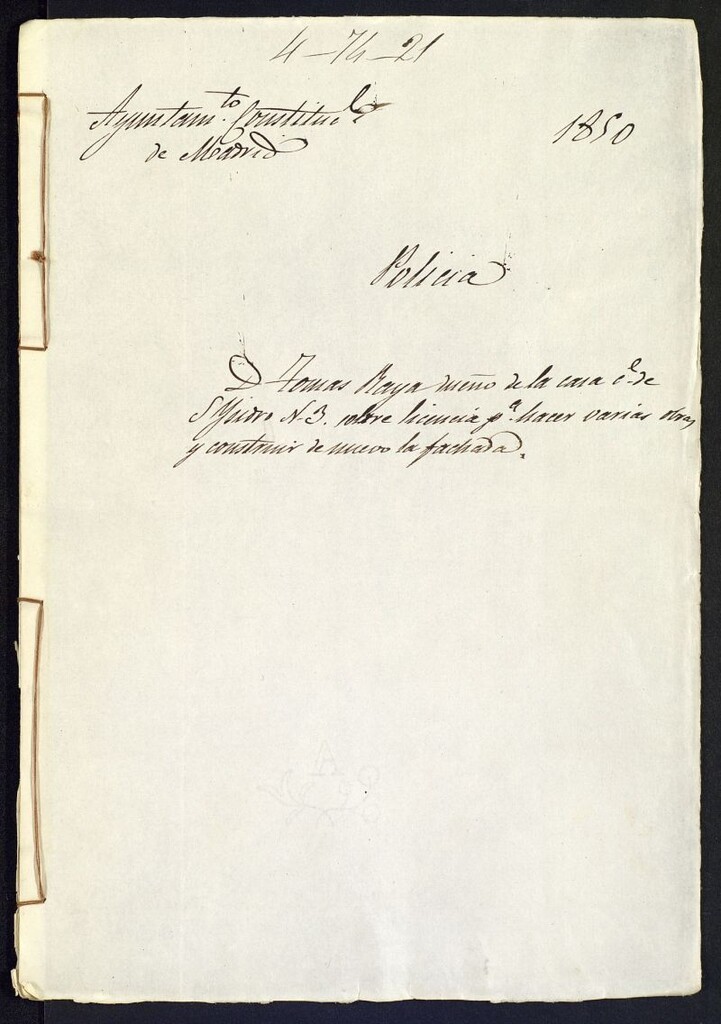 4-74-21
Ayuntam.to Constituc.l
de Madrid
1850
Policia
D Tomas Raya dueño de la casa c.le de
S Ysidro N. 3. sobre licencia p.a hacer varias obras
y construir de nuevo la fachada.
A